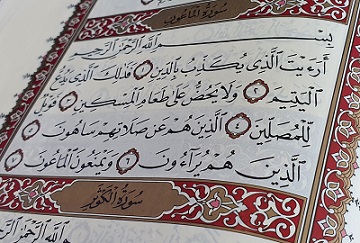 سُورَةُ المَاعُونِ
بِسْمِ اللَّهِ الرَّحْمَٰنِ الرَّحِيمِ
أَرَءَيْتَ الَّذِي يُكَذِّبُ بِالدِّينِ ١ فَذَٰلِكَ الَّذِي يَدُعُّ
الْيَتِيمَ ٢ وَلَا يَحُضُّ عَلَىٰ طَعَامِ الْمِسْكِينِ ٣ فَوَيْلٌ
لِّلْمُصَلِّينَ ٤ الَّذِينَ هُمْ عَن صَلَاتِهِمْ سَاهُونَ ٥
الَّذِينَ هُمْ يُرَآءُونَ ٦ وَيَمْنَعُونَ الْمَاعُونَ ٧
سُورَةُ الكَوْثَرِ
اللَّهِ الرَّحْمَٰنِ الرَّحِيمِ